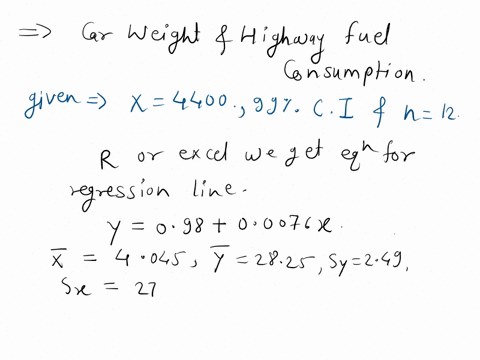 => Car Weight & Highway fuel
Consumption.
given => X = 4400., 99%. C.I & n = 12.
R or excel we get eqⁿ for
regression line.
y = 0.98 + 0.0076x.
x̅ = 4.045, y̅ = 28.25, Sy = 2.49,
Sx = 27